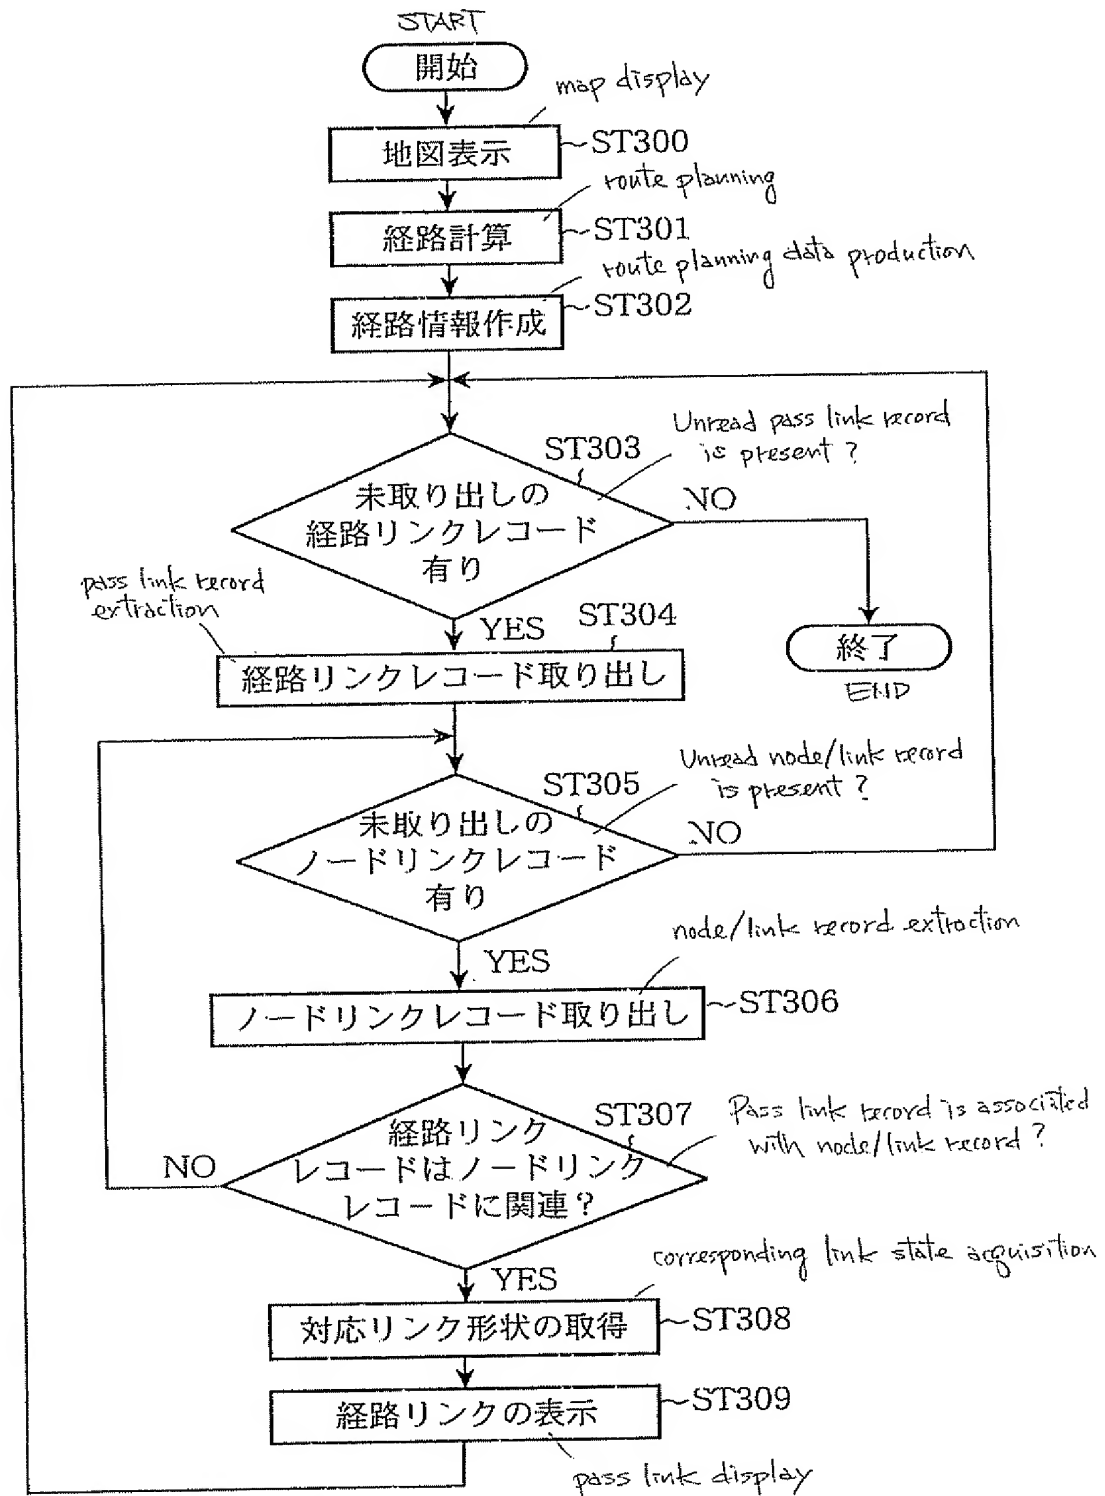 START
開始
map display
地図表示
ST300
route planning
経路計算
ST301
route planning data production
経路情報作成
ST302
Unread pass link record
is present ?
ST303
未取り出しの
経路リンクレコード
有り
NO
pass link record
extraction
YES
ST304
経路リンクレコード取り出し
終了
END
Unread node/link record
is present ?
ST305
未取り出しの
ノードリンクレコード
有り
NO
YES
node/link record extraction
ノードリンクレコード取り出し
ST306
ST307
Pass link record is associated
with node/link record ?
経路リンク
レコードはノードリンク
レコードに関連？
NO
YES
corresponding link state acquisition
対応リンク形状の取得
ST308
経路リンクの表示
ST309
pass link display